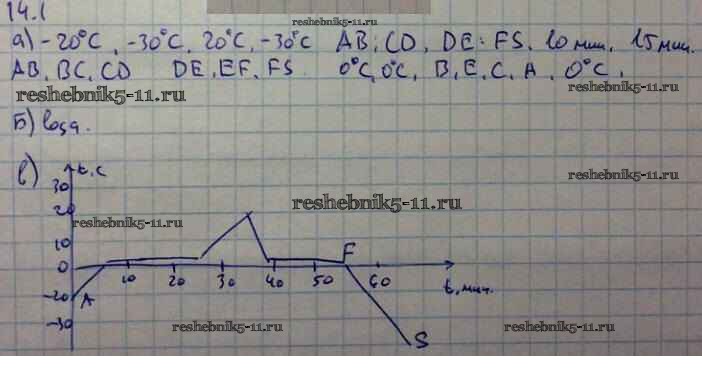 14.1
а) -20°С, -30°С, 20°С, -30°С АВ; CD, DE; FS. 10 мин, 15 мин.
АВ, ВС, CD DE, EF, FS. 0°С, 0°С, В, Е, С, А, 0°С.
reshebnik5-11.ru
reshebnik5-11.ru
Б) вода.
в)
t, с
reshebnik5-11.ru
30
20
reshebnik5-11.ru
reshebnik5-11.ru
10
F
0
10 20 30 40 50 60
t, мин.
-20
A
-30
reshebnik5-11.ru
reshebnik5-11.ru
S